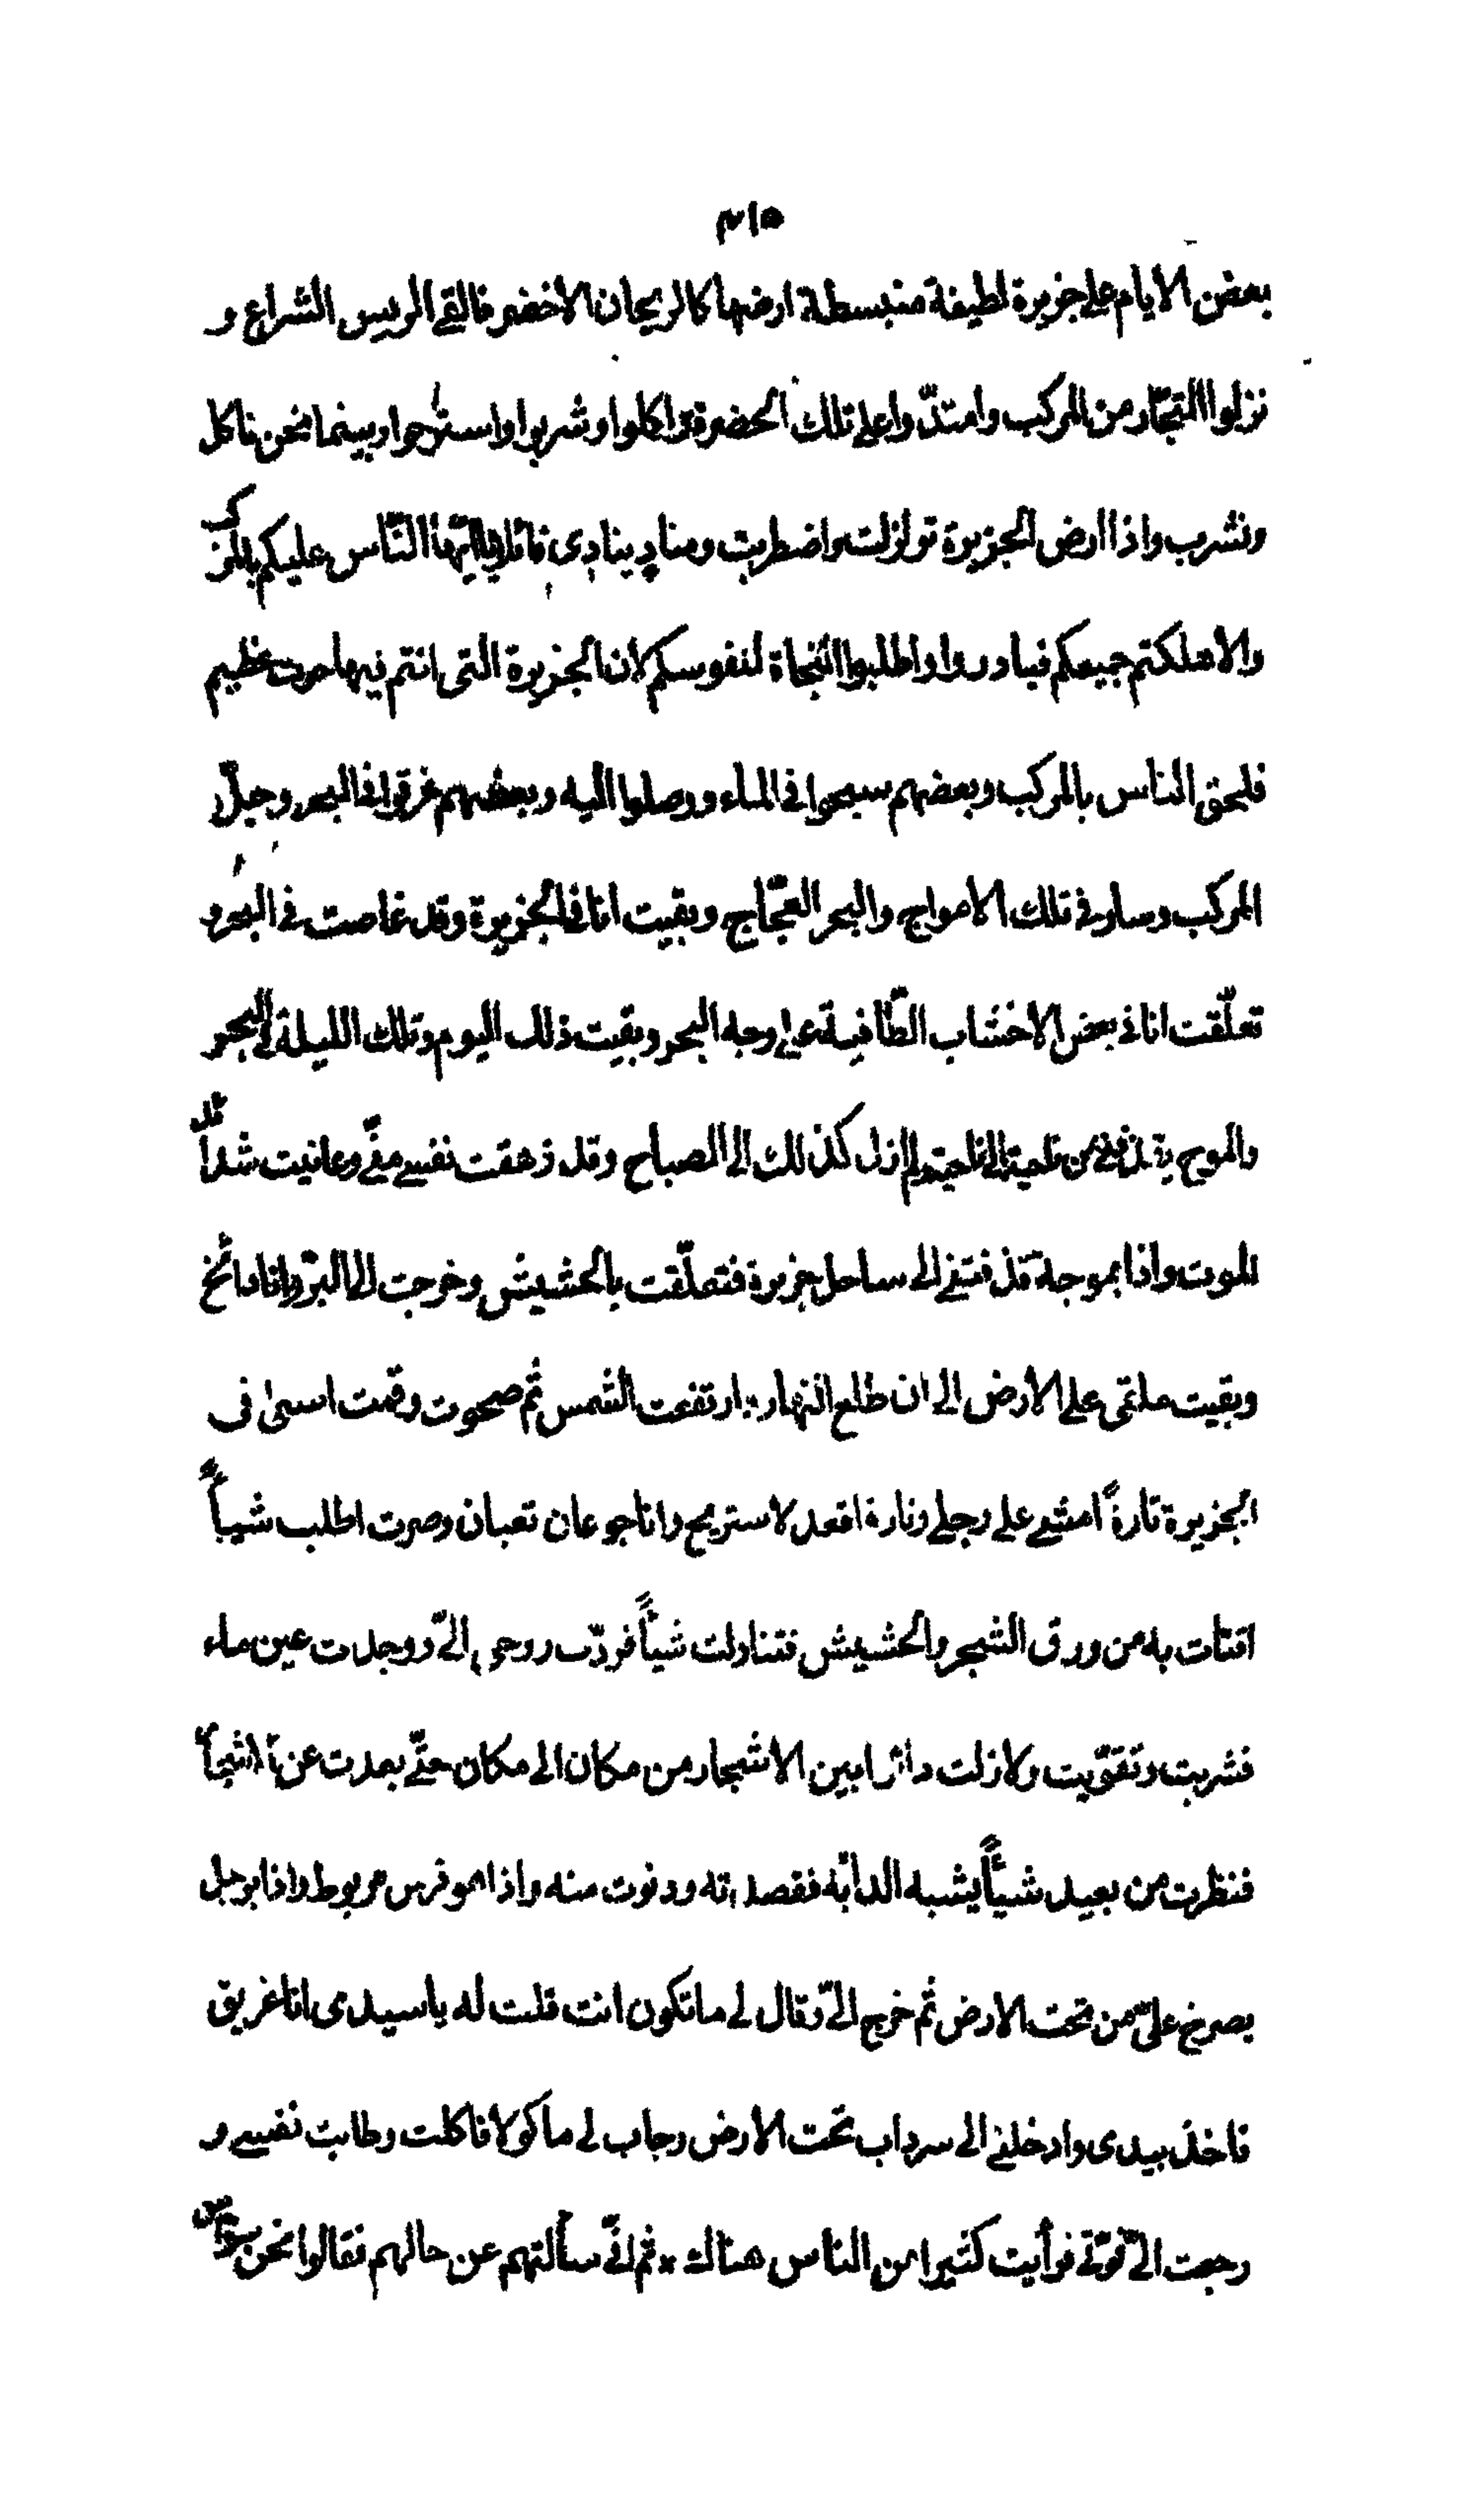 ٣١٥
بعض الايام على جزيرة لطيفة منبسطة ارضها كالريحان الاخضر فالقى الريس الشراع و
نزلوا التجّار من المركب وامتدّوا على تلك الحضرة واكلوا وشربوا واستراحوا وبينما نحن ناكل
ونشرب واذا ارض الجزيرة تزلزلت واضطربت ومنادٍ ينادى قائلا يا ايّها النّاس عليكم بالمركب
والا هلكتم جميعكم فبادروا واطلبوا النجاة لنفوسكم لان الجزيرة التى انتم فيها حوت عظيم
فلحق الناس بالمركب وبعضهم سبحوا فى الماء ووصلوا اليه وبعضهم غرقوا فى البحر وحلّ
المركب وسار فى تلك الامواج والبحر العجّاج وبقيت انا فى الجزيرة وقد غاصت فى البحر و
تعلّقت انا فى بعض الاخشاب الطّافية على وجه البحر وبقيت ذلك اليوم وتلك الليلة فى البحر
والموج يقذفنى من ناحية الى ناحية ولم ازل كذلك الى الصباح وقد زهقت نفسى منّى وعانيت شدائد
الموت واذا بموجة قذفتنى الى ساحل جزيرة فتعلّقت بالحشيش وخرجت الى البرّ وانا دائخ
وبقيت ملقى على الارض الى ان طلع النّهار وارتفعت الشمس ثم صحوت وقمت اسعى فى
الجزيرة تارةً امشى على رجلى وتارة اقعد لاستريح وانا جوعان تعبان وصرت اطلب شيئاً
اقتات به من ورق الشجر والحشيش فتناولت شيئاً فردّت روحى الىّ ووجدت عين ماء
فشربت وتقوّيت ولازلت دائرا بين الاشجار من مكان الى مكان حتّى بعدت عن الاشجار
فنظرت من بعيد شيئاً يشبه الدابّة فقصدته ودنوت منه واذا هو فرس مربوط واذا برجل
يصرخ علىّ من تحت الارض ثم خرج الىّ وقال لى ما تكون انت قلت له يا سيدى انا غريق
فاخذ بيدى وادخلنى الى سرداب تحت الارض وجاب لى ماكولا فاكلت وطابت نفسى و
رجعت الىّ قوّتى فرأيت كثيرا من الناس هناك * ثم انّى سألتهم عن حالهم فقالوا نحن